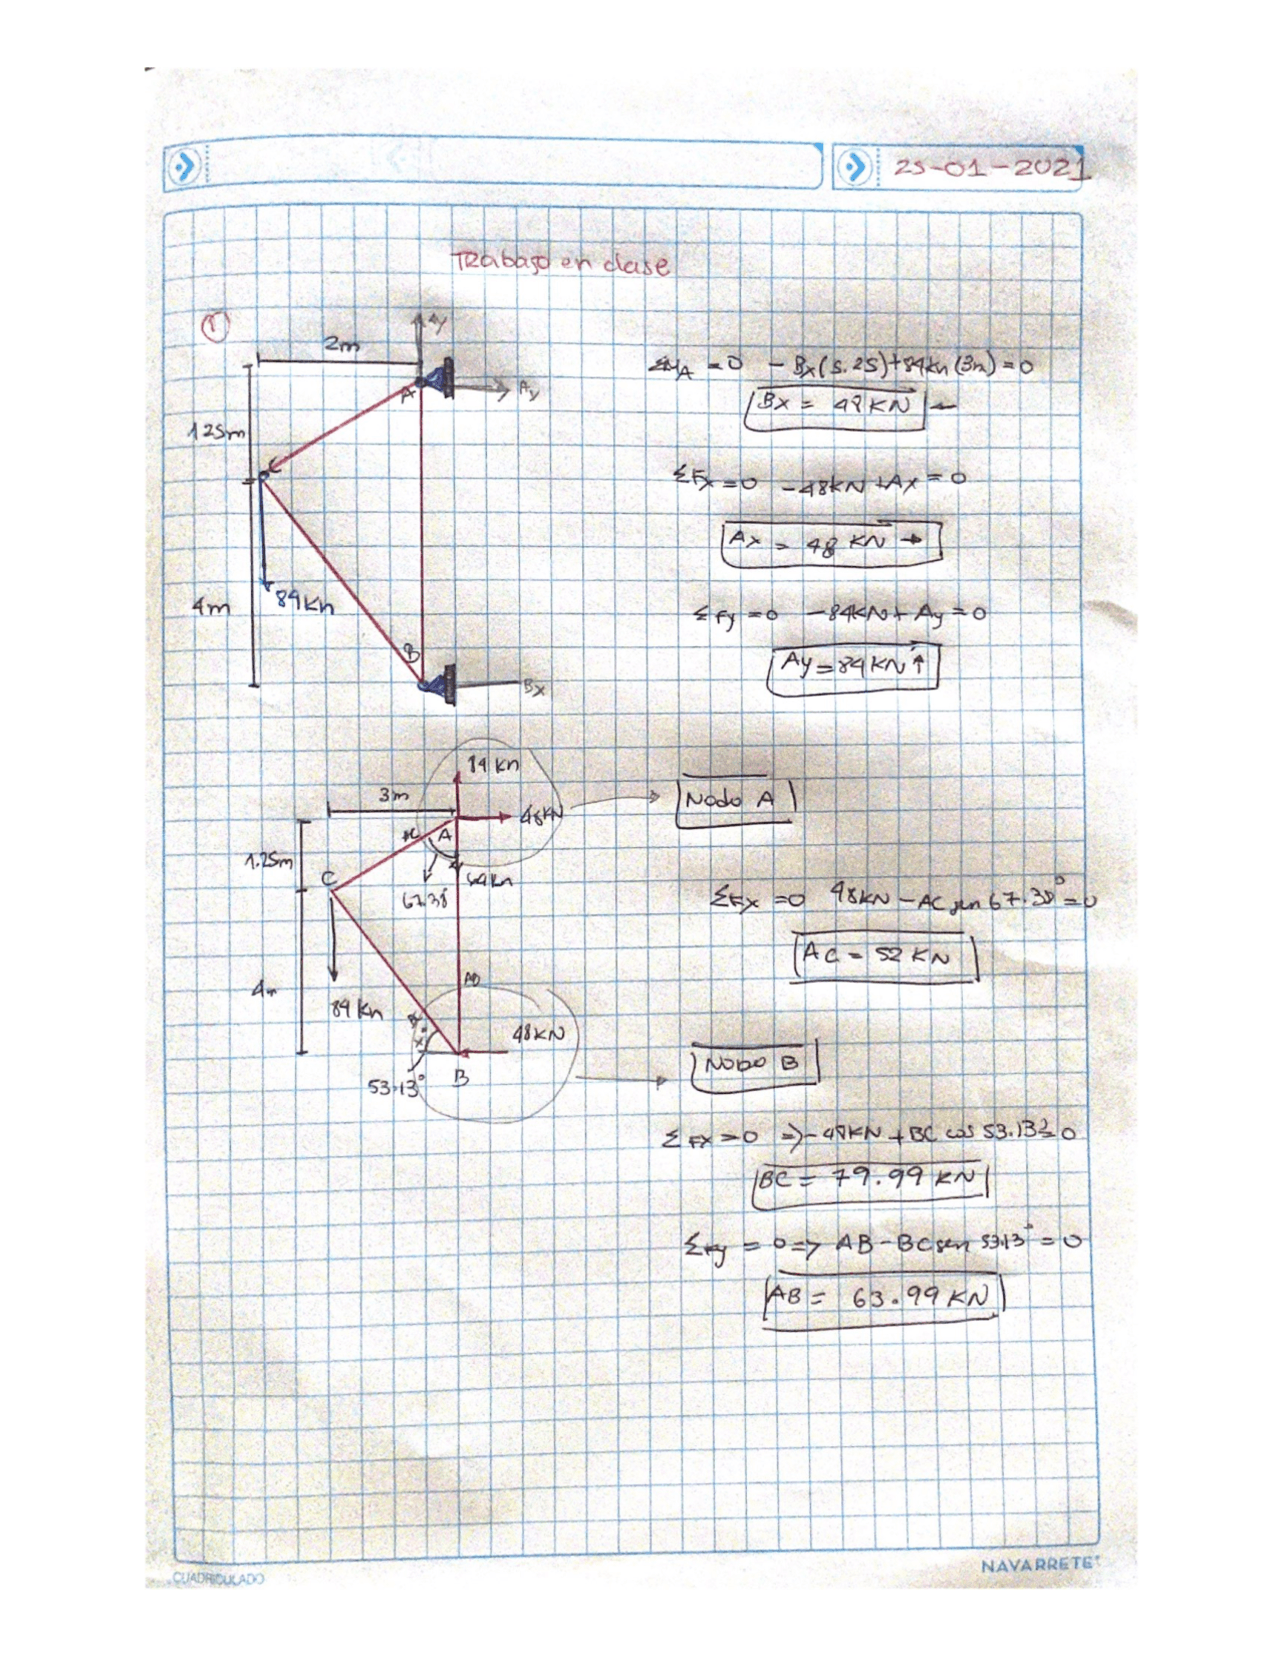 25-01-2021
Trabajo en clase
1
2m
Ay
A
Ay
1.25m
C
84Kn
4m
B
Bx
ΣMA = 0 - Bx(5.25)+84Kn(3m)=0
Bx = 48 KN ←
ΣFx=0 -48KN+Ax=0
Ax = 48 KN →
ΣFy=0 -84KN+Ay=0
Ay=84KN↑
84 Kn
3m
48KN
A
1.25m
C
67.38
64Kn
4m
84 Kn
48KN
53.13°
B
Nodo A
ΣFx =0 48KN-AC sen 67.38°=0
AC = 52 KN
NODO B
ΣFx=0 => -48KN+BC cos 53.13=0
BC = 79.99 KN
ΣFy = 0 => AB-BC sen 53.13°=0
AB = 63.99 KN
CUADRICULADO
NAVARRETE